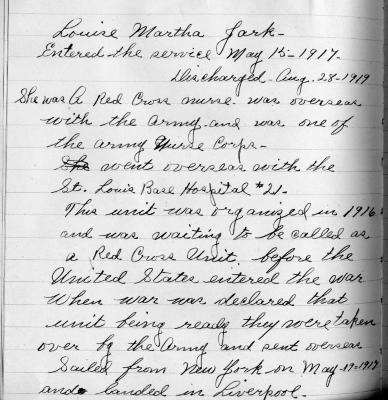 Louise Martha Jark-
Entered the service May 15-1917-
Discharged Aug. 28-1919
She was A Red Cross nurse. was overseas
with the Army and was one of
the army Nurse Corps-
She went overseas with the
St. Louis Base Hospital #21-
This unit was organized in 1916
and was waiting to be called as
a Red Cross Unit, before the
United States entered the war
When war was declared that
unit being ready they were taken
over by the Army and sent overseas
Sailed from New York on May-19-1917
and landed in Liverpool-